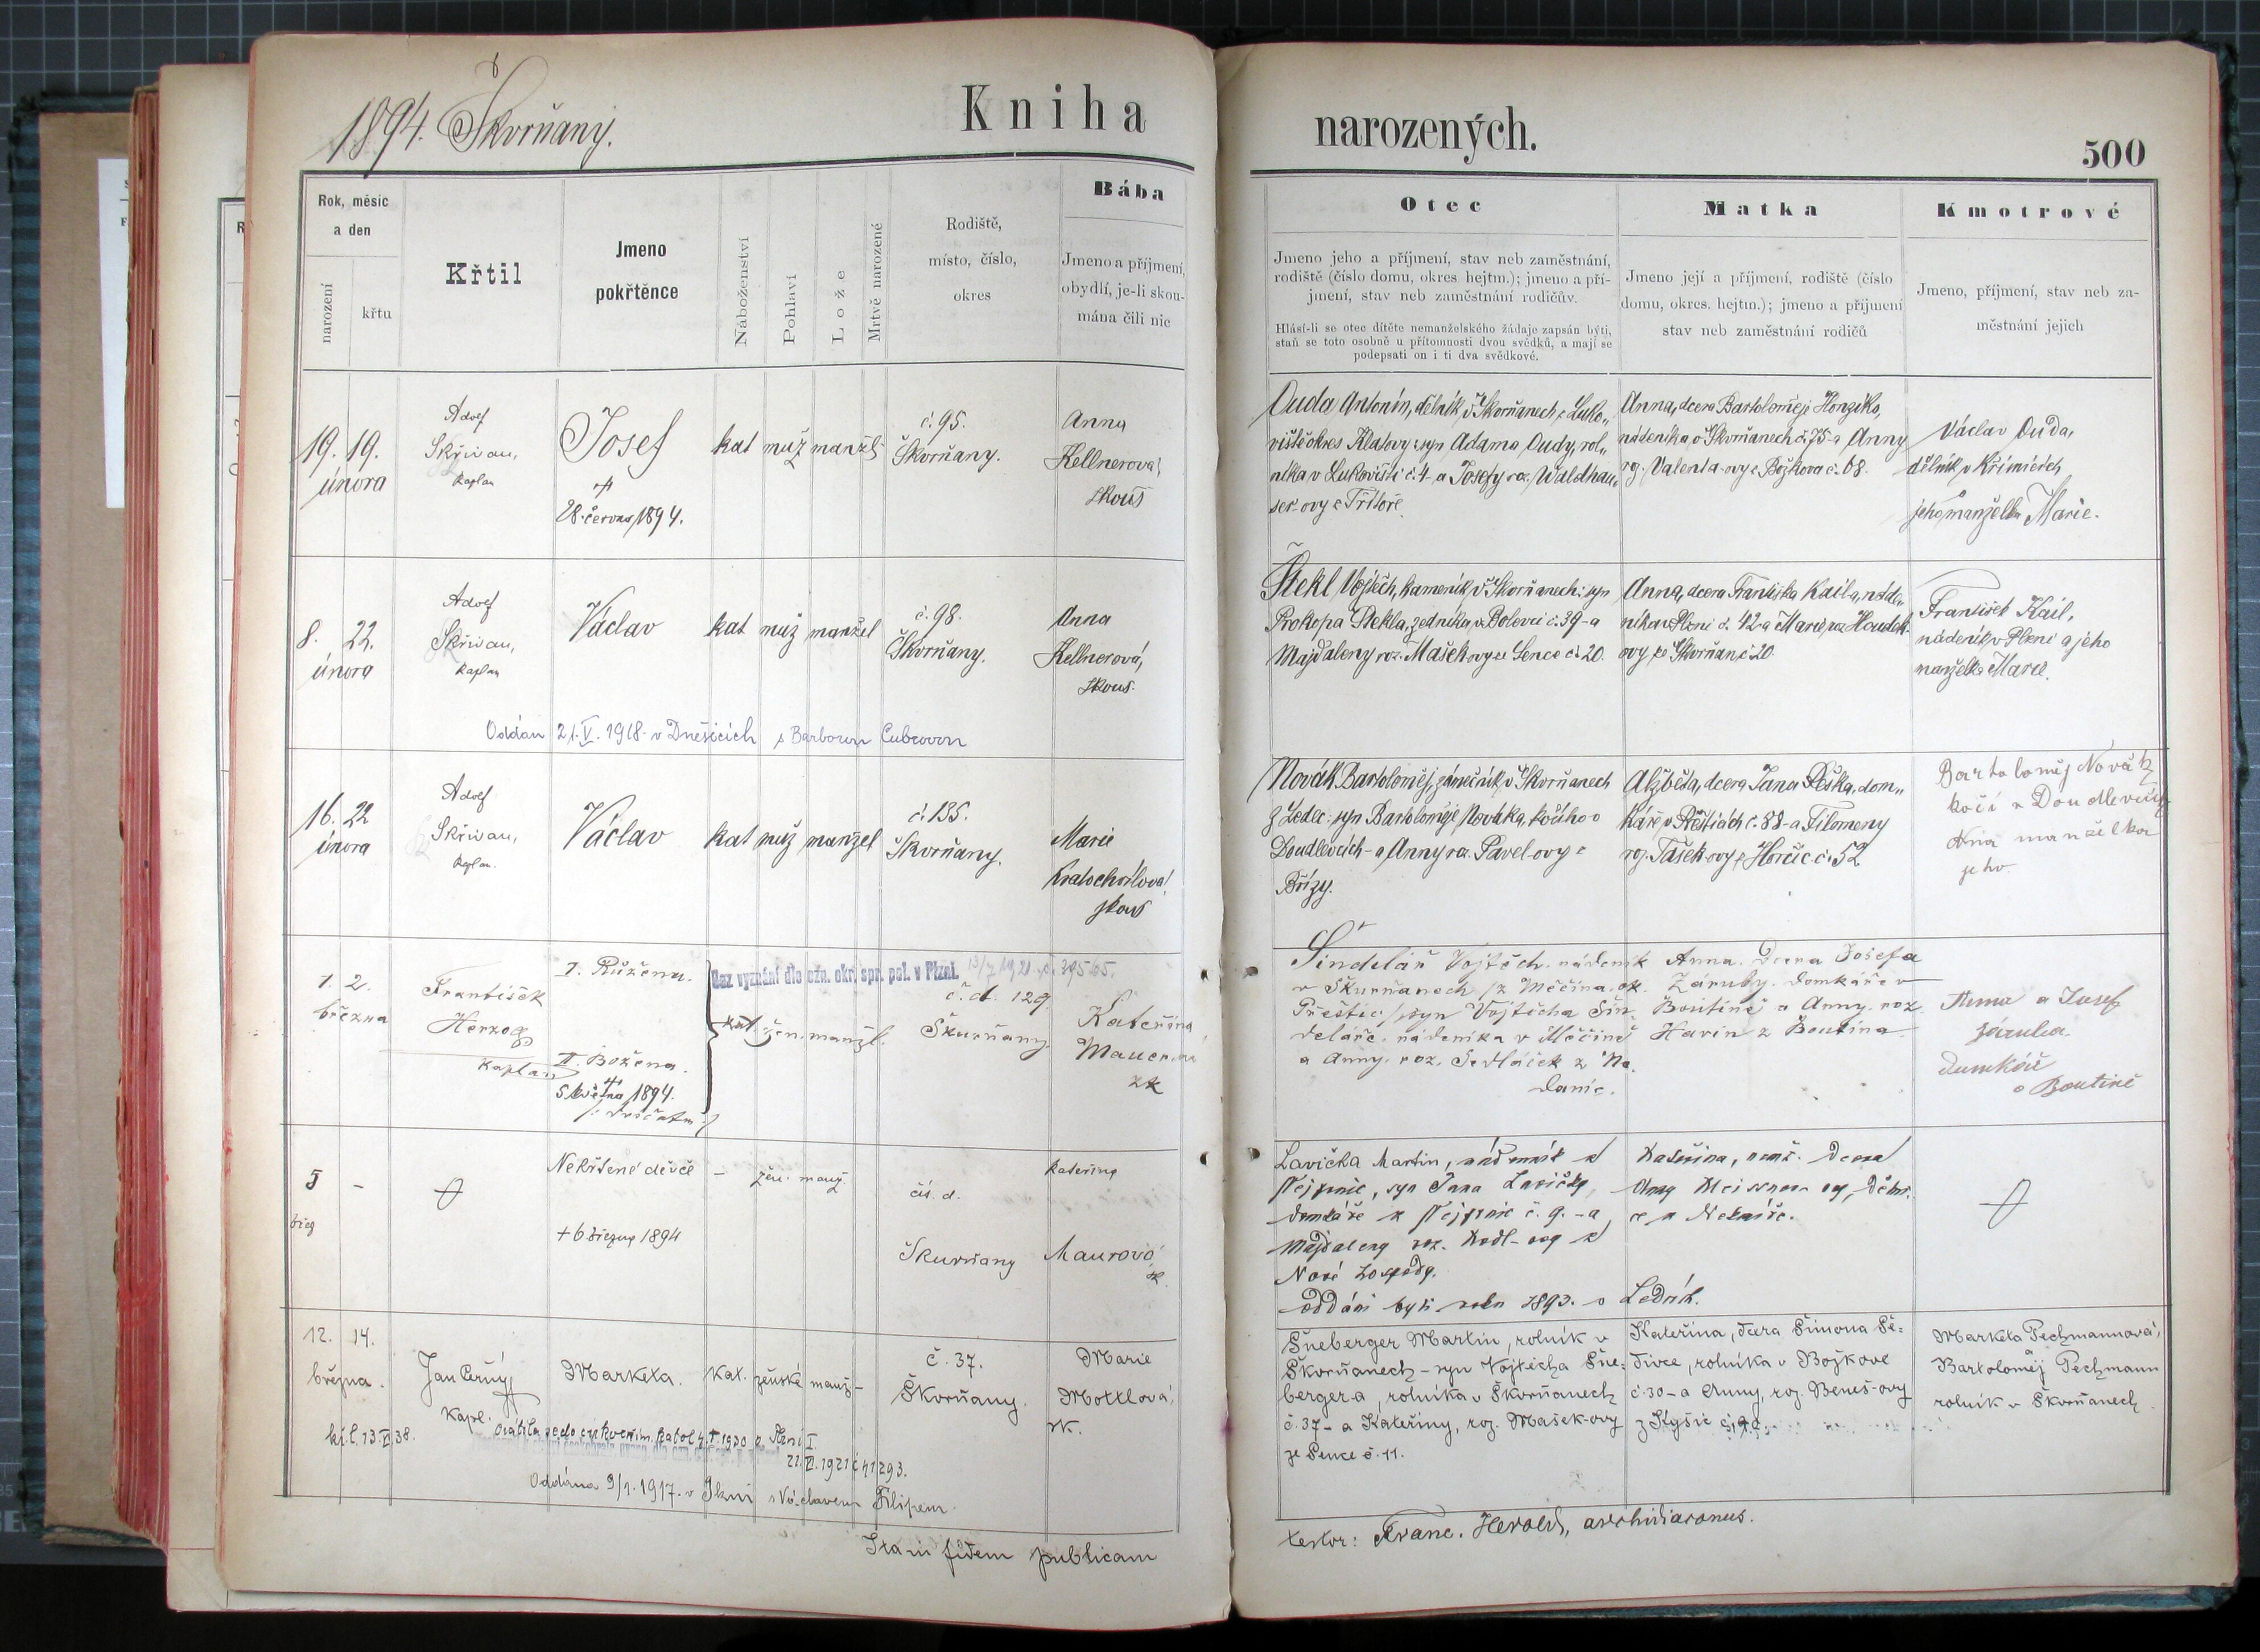 1894. Škorňany.
Kniha
narozených.
500
Rok, měsíc
a den
narození
křtu
Křtil
Jmeno
pokřtěnce
Náboženství
Pohlaví
Lože
Mrtvě narozené
Rodiště,
místo, číslo,
okres
Bába
Jmeno a příjmení,
obydlí, je-li skou-
mána čili nic
Otec
Jmeno jeho a příjmení, stav neb zaměstnání,
rodiště (číslo domu, okres. hejtm.); jmeno a pří-
jmení, stav neb zaměstnání rodičův.
Hlásí-li se otec dítěte nemanželského žádaje zapsán býti,
staň se toto osobně u přítomnosti dvou svědků, a mají se
podepsati on i ti dva svědkové.
Matka
Jmeno její a příjmení, rodiště (číslo
domu, okres. hejtm.); jmeno a příjmení
stav neb zaměstnání rodičů
Kmotrové
Jmeno, příjmení, stav neb za-
městnání jejich
19. 19.
února
Adolf
Skřivan,
kaplan
Josef
28. června 1894.
kat muž manžel
č. 95.
Škorňany.
Anna
Kellnerová,
zkouš
Duda Antonín, dělník v Škorňanech z Luko-
viště okres Klatovy: syn Adama Dudy, rol-
níka v Lukovišti č. 4 - a Josefy roz. Waldhau-
ser-ovy z
Anna, dcera Bartoloměje Honzíka,
nádeníka v Škorňanech č. 75 - a Anny
roz. Valenta-ovy z Božkova č. 68.
Václav Duda,
dělník v Křimicích
jeho manželka Marie.
8. 22.
února
Adolf
Skřivan,
kaplan
Václav
kat muž manžel
č. 98.
Škorňany.
Anna
Kellnerová,
zkouš.
Oddán 21.V.1918. v Dnešicích s Barborou
Štekl Vojtěch, kameník v Škorňanech: syn
Prokopa Štekla, zedníka, v Bolevci č. 39 - a
Majdaleny roz. Mašek-ovy ze Sence č. 20.
Anna, dcera Františka Kaila, náde-
níka v Plzni č. 42 a Marie, roz. Houdek-
ovy ze Škorňan č. 20.
František Kail,
nádeník v Plzni a jeho
manželka Marie.
16. 22
února
Adolf
Skřivan,
kaplan.
Václav
kat muž manžel
č. 135.
Škorňany.
Marie
Kratochvílová,
zkouš
Novák Bartoloměj, zámečník v Škorňanech
z Ledec: syn Bartoloměje Nováka, kočího v
Doudlevcích - a Anny roz. Pavel-ovy z
Břízy.
Alžběta, dcera Jana Peška, dom-
káře v Přešticích č. 88 - a Filomeny
roz. Tašek-ovy z Horčic č. 52
Bartoloměj Novák
kočí v Doudlevcích
Ana manželka
jeho
1. 2.
března
František
Herzog
kaplan
I. Růžena.
II. Božena.
5 května 1894.
/: dvojčata :/
Bez vyznání dle ozn. okr. spr. pol. v Plzni. 13/7 1921 č. 39565.
kat. žen. manžl.
č. d. 129
Škurňany
Kateřina
Mauerová
zk
Šindelář Vojtěch. nádeník
v Škurňanech /z Měčína. ok.
Přeštic/ syn Vojtěcha Šin-
deláře. nádeníka v Měčíně
a Anny. roz. Sedláček z Ne-
danic.
Anna. Dcera Josefa
Záruby. Domkáře v
Boutině a Anny. roz
Havin z Boutina
Anna a Josef
Záruba
Domkář
v Boutině
5 -
břez
Nekřtěné děvče
+ 6 března 1894
- žen. manž.
čís. d.
Škurňany
Kateřina
Maurová,
zk.
Lavička Martin, nádeník z
syn Jana Lavičky,
domkáře z č. 9. - a
Majdaleny roz. -ovy z
Nové hospody.
oddáni byli roku 1893. v Ledcích.
Kateřina, nemž. Dcera
Anny Meissner-ovy,
z Nekmíře.
12. 14.
března
Jan Černý,
Kapl.
Markéta.
Kat. ženské manž -
č. 37.
Škorňany.
Marie
Mottlová,
zk.
kř.l. 13.II.38.
Vrátila se do církve řím. katol. 4.I.1930 v Plzni I.
21.II.1921 č. 41293.
Oddána 9/1. 1917. v Plzni s Václavem Filipem.
Šneberger Martin, rolník v
Škorňanech - syn Vojtěcha Šne-
berger-a, rolníka v Škorňanech
č. 37 - a Kateřiny, roz. Mašek-ovy
ze Sence č. 11.
Kateřina, dcera Šimona Še-
divce, rolníka v Božkově
č. 30 - a Anny, roz. Beneš-ovy
z Kyšic
Markéta Pechmannová,
a
Bartoloměj Pechmann
rolník v Škorňanech
Ita in fidem publicam
testor: Franc. Herold, archidiaconus.